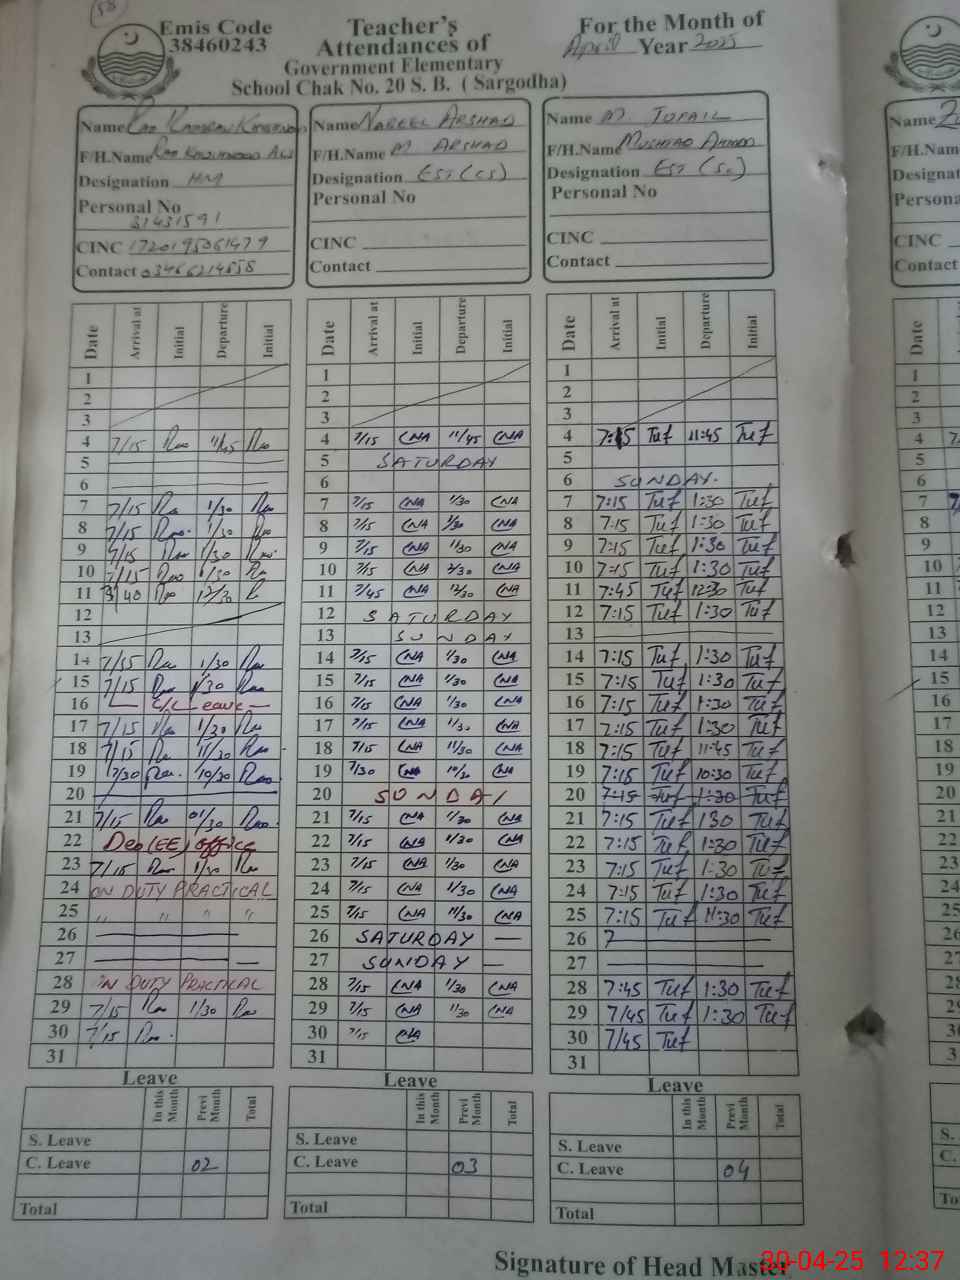 58
Emis Code
38460243
Teacher's
Attendances of
Government Elementary
School Chak No. 20 S. B. ( Sargodha)
For the Month of
April Year 2025
Name
F/H.Name
Designation HM
Personal No
31431591
CINC
Contact 03466214558
Name NABEEL ARSHAD
F/H.Name M ARSHAD
Designation EST (CS)
Personal No
CINC
Contact
Name M. TUFAIL
F/H.Name MUSHTAQ AHMAD
Designation EST (Sc)
Personal No
CINC
Contact
Date Arrival at Initial Departure Initial
1
2
3
4 7/15 11/45
5
6
7 7/15 1/30
8 7/15 1/30
9 7/15 1/30
10 7/15 1/30
11 12/30
12
13
14 1/30
15 7/15 1/30
16 C/Leave
17 7/15 1/30
18 7/15 11/30
19 7/30 10/30
20
21 7/15 01/30
22 Deo(EE) office
23 7/15 1/30
24 ON DUTY PRACTICAL
25 " " " "
26
27
28 ON DUTY PRACTICAL
29 7/15 1/30
30 7/15
31
Date Arrival at Initial Departure Initial
1
2
3
4 7/15 CNA 11/45 CNA
5 SATURDAY
6
7 7/15 CNA 1/30 CNA
8 7/15 CNA 1/30 CNA
9 7/15 CNA 1/30 CNA
10 7/15 CNA 1/30 CNA
11 7/45 CNA 12/30 CNA
12 SATURDAY
13 SUNDAY
14 7/15 CNA 1/30 CNA
15 7/15 CNA 1/30 CNA
16 7/15 CNA 1/30 CNA
17 7/15 CNA 1/30 CNA
18 7/15 CNA 11/30 CNA
19 7/30 CNA 10/30 CNA
20 SUNDAY
21 7/15 CNA 1/30 CNA
22 7/15 CNA 1/30 CNA
23 7/15 CNA 1/30 CNA
24 7/15 CNA 1/30 CNA
25 7/15 CNA 11/30 CNA
26 SATURDAY
27 SUNDAY
28 7/15 CNA 1/30 CNA
29 7/15 CNA 1/30 CNA
30 7/15 CNA
31
Date Arrival at Initial Departure Initial
1
2
3
4 7:15 Tuf 11:45 Tuf
5
6 SUNDAY.
7 7:15 Tuf 1:30 Tuf
8 7:15 Tuf 1:30 Tuf
9 7:15 Tuf 1:30 Tuf
10 7:15 Tuf 1:30 Tuf
11 7:45 Tuf 12:30 Tuf
12 7:15 Tuf 1:30 Tuf
13
14 7:15 Tuf 1:30 Tuf
15 7:15 Tuf 1:30 Tuf
16 7:15 Tuf 1:30 Tuf
17 7:15 Tuf 1:30 Tuf
18 7:15 Tuf 11:45 Tuf
19 7:15 Tuf 10:30 Tuf
20 7:15 Tuf 1:30 Tuf
21 7:15 Tuf 130 Tuf
22 7:15 Tuf 1:30 Tuf
23 7:15 Tuf 1:30 Tuf
24 7:15 Tuf 1:30 Tuf
25 7:15 Tuf 11:30 Tuf
26 7
27
28 7:45 Tuf 1:30 Tuf
29 7/45 Tuf 1:30 Tuf
30 7/45 Tuf
31
Leave
In this Month Previ Month Total
S. Leave
C. Leave 02
Total
Leave
In this Month Previ Month Total
S. Leave
C. Leave 03
Total
Leave
In this Month Previ Month Total
S. Leave
C. Leave 04
Total
Signature of Head Master
30-04-25 12:37